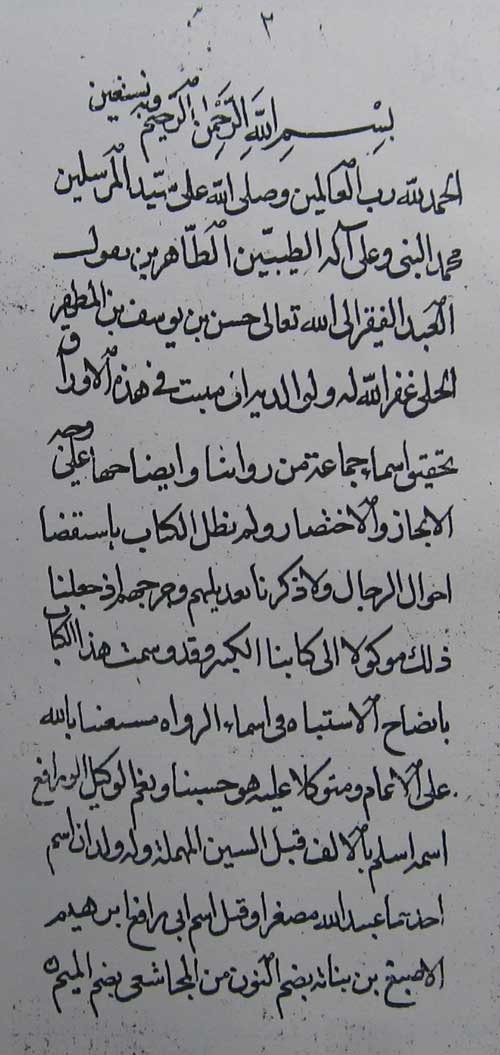 ٢
بِسْمِ اللَّهِ الرَّحْمٰنِ الرَّحيم وبه نستعين
الحمد لله رب العالمين وصلى الله على سيد المرسلين
محمد النبى وعلى آله الطيبين الطاهرين يقول
العبد الفقير الى الله تعالى حسن بن يوسف بن المطهر
الحلى غفر الله له ولوالديه انى مثبت فى هذه الاوراق
تحقيق اسماء جماعة من رواتنا وايضاحها على وجه
الايجاز والاختصار ولم نطل الكتاب باستقضا
احوال الرجال ولا ذكرنا تعديلهم وجرحهم اذ جعلنا
ذلك موكولا الى كتابنا الكبير وقد وسمت هذا الكتاب
بايضاح الاشتباه فى اسماء الرواه مستعينا بالله
على الاتمام ومتوكلا عليه هو حسبنا ونعم الوكيل ابو رافع
اسمه اسلم بالالف قبل السين المهملة وله ولدان اسم
احدهما عبيد الله مصغرا وقيل اسم ابى رافع ابرهيم
الاصبغ بن نباته بضم النون من المجاشعى بضم الميم